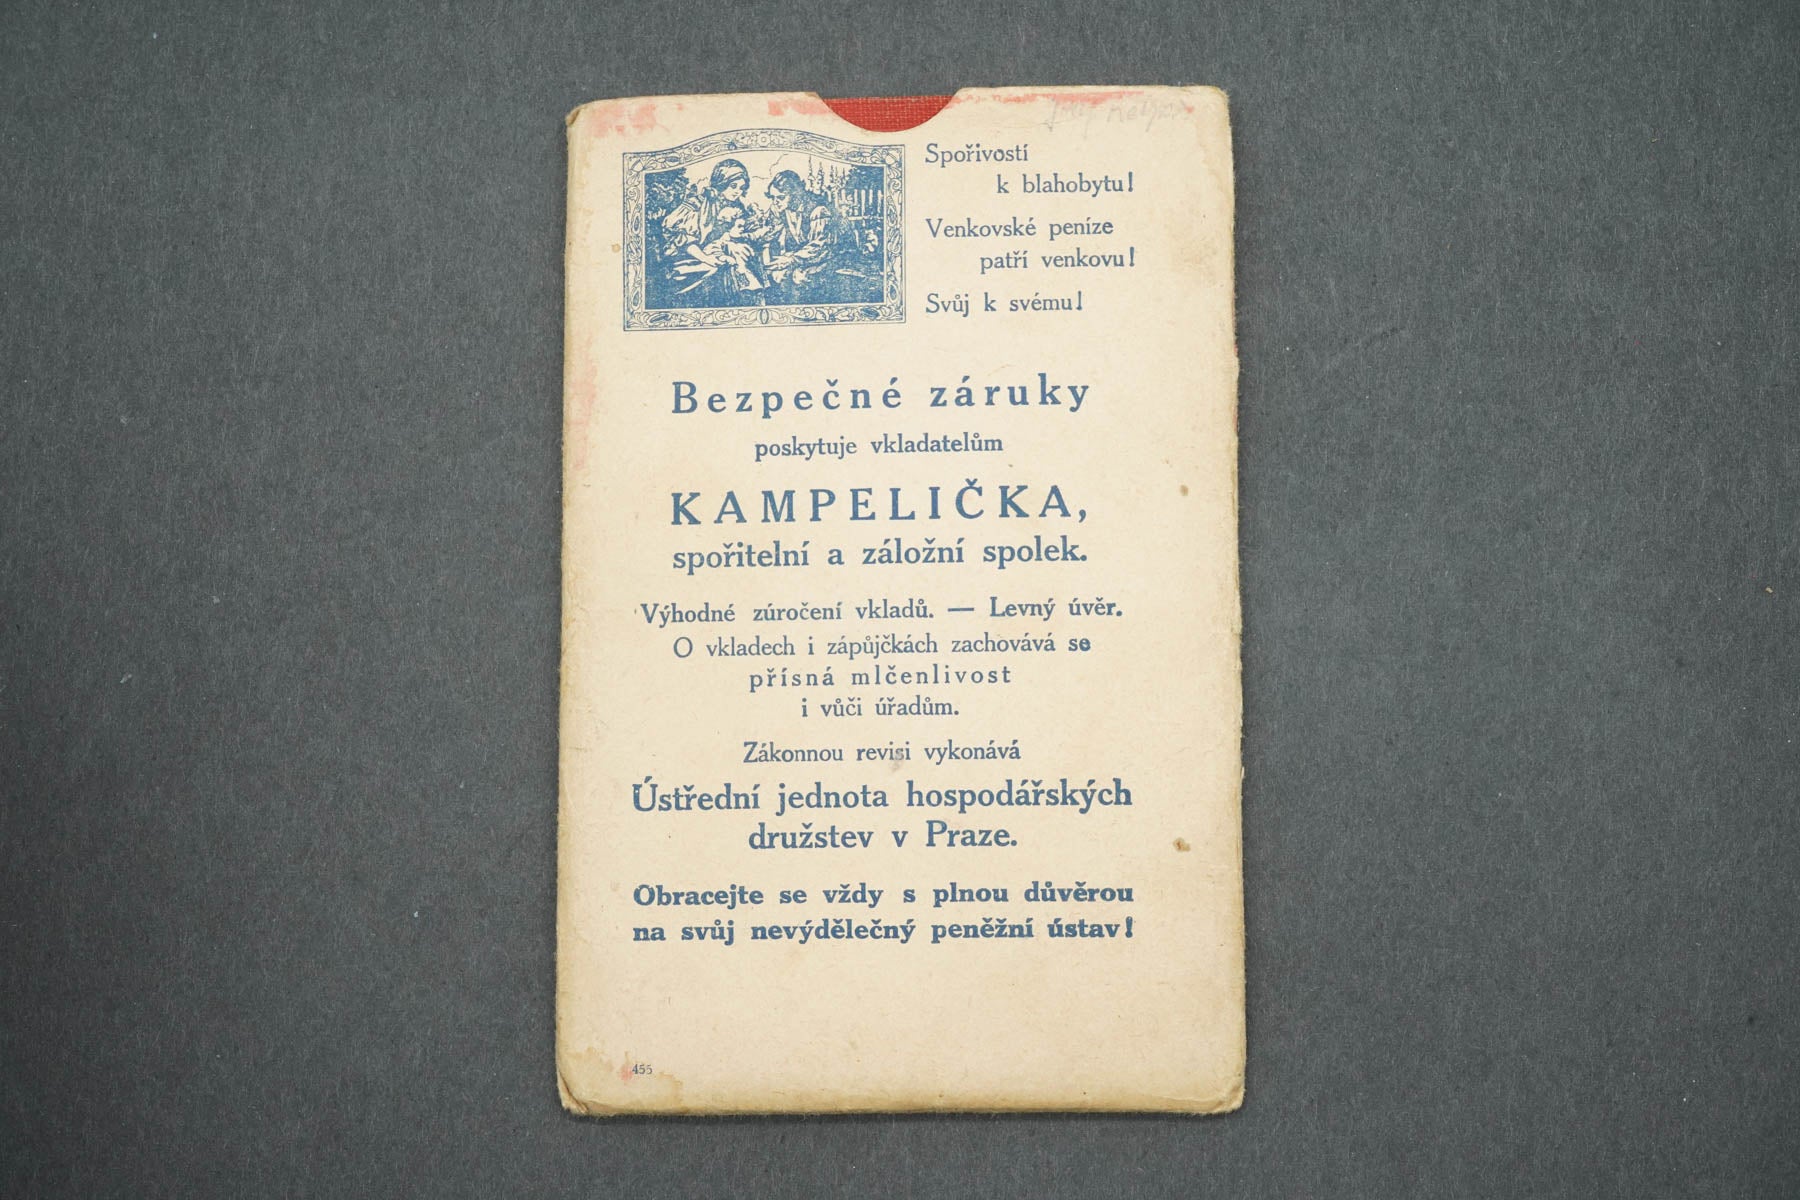 Spořivostí
k blahobytu!
Venkovské peníze
patří venkovu!
Svůj k svému!
Bezpečné záruky
poskytuje vkladatelům
KAMPELIČKA,
spořitelní a záložní spolek.
Výhodné zúročení vkladů. — Levný úvěr.
O vkladech i zápůjčkách zachovává se
přísná mlčenlivost
i vůči úřadům.
Zákonnou revisi vykonává
Ústřední jednota hospodářských
družstev v Praze.
Obracejte se vždy s plnou důvěrou
na svůj nevýdělečný peněžní ústav!
455